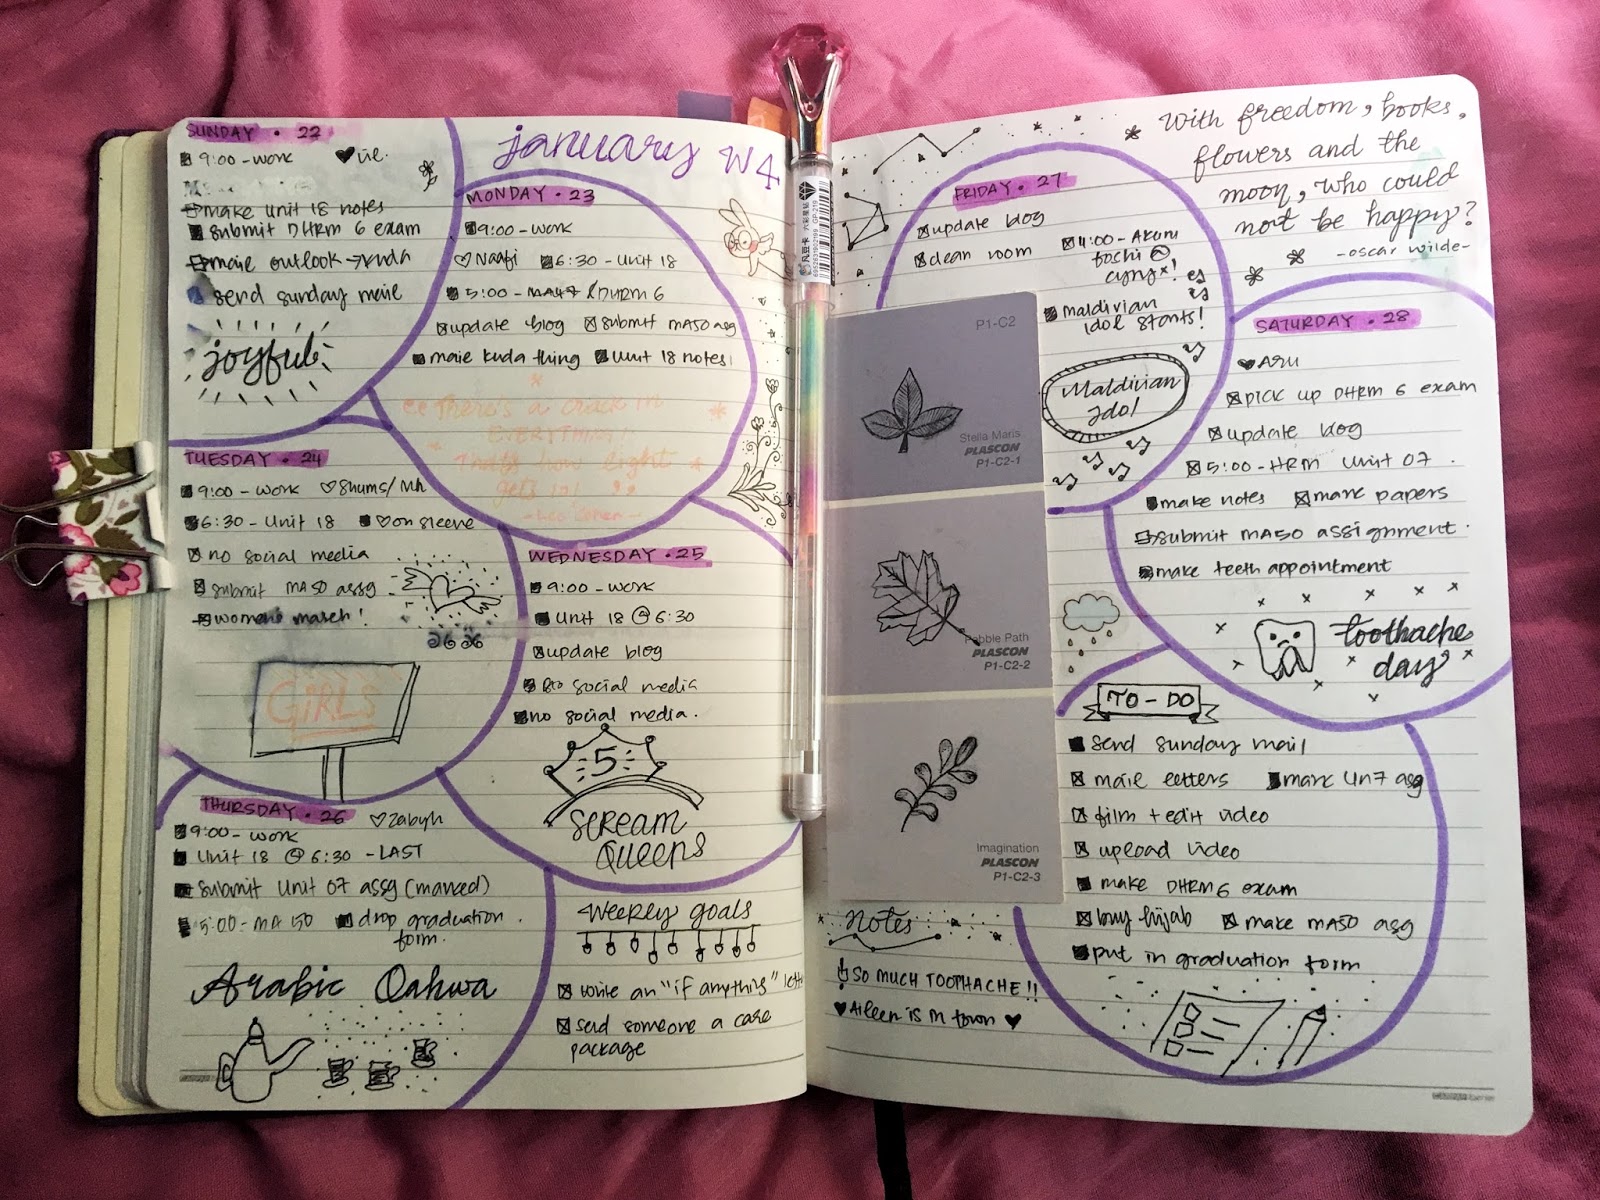 january W4
SUNDAY • 22
9:00 - work
make unit 18 notes
submit DHRM 6 exam
send sunday mail
joyful
MONDAY • 23
9:00 - work
Naafi 6:30 - Unit 18
5:00 - MA47 DHRM 6
update blog submit MA50 asg
kuda thing Unit 18 notes
There's a crack in
EVERYTHING!
That's how light
gets in!
TUESDAY • 24
9:00 - work Shums/
6:30 - Unit 18 on sleeve
no social media
submit MA50 assg
women's march!
GIRLS
WEDNESDAY • 25
9:00 - work
Unit 18 @ 6:30
update blog
social media
no social media.
5
SCREAM
QUEENS
THURSDAY • 26
Zabyh
9:00 - work
Unit 18 @ 6:30 - LAST
submit Unit 07 assg (marked)
5:00 - MA 50 drop graduation
form.
Arabic Qahwa
Weekly goals
write an "if anything"
send someone a care
package
With freedom, books,
flowers and the
moon, who could
not be happy?
- oscar wilde -
FRIDAY • 27
update blog
clean room
4:00 -
maldivian
idol starts!
Maldivian
Idol
P1-C2
Stella Maris
PLASCON
P1-C2-1
Pebble Path
PLASCON
P1-C2-2
Imagination
PLASCON
P1-C2-3
SATURDAY • 28
Aru
PICK up DHRM 6 exam
update blog
5:00 - HRM Unit 07
make notes mark papers
submit MA50 assignment
make teeth appointment
toothache
day
TO-DO
send sunday mail
letters mark Un7 asg
film + edit video
upload video
make DHRM 6 exam
buy hijab make MA50 asg
put in graduation form
Notes
SO MUCH TOOTHACHE!!
Aileen is in town
GP-219